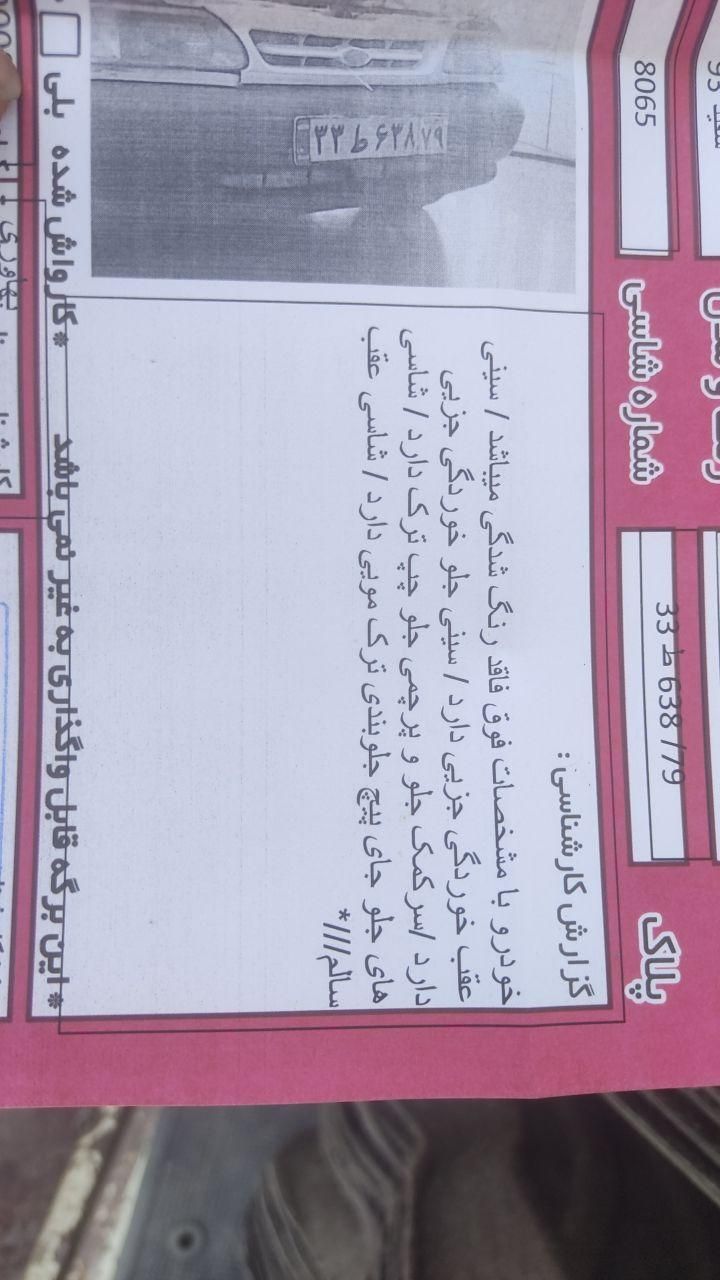 پلاک
33 ط 638 /79
شماره شاسی
8065
گزارش کارشناسی :
خودرو با مشخصات فوق فاقد رنگ شدگی میباشد / سینی
عقب خوردگی جزیی دارد / سینی جلو خوردگی جزیی
دارد /سر کمک جلو و پرچمی جلو چپ ترک دارد / شاسی
های جلو جای پیچ جلوبندی ترک مویی دارد / شاسی عقب
سالم///*
۳۳ ط ۶۳۸ ۷۹
* این برگه قابل واگذاری به غیر نمی باشد
*کارواش شده بلی